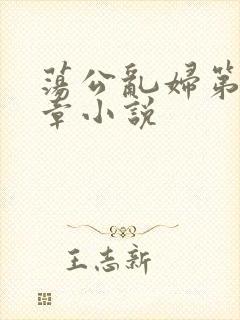 蕩公亂婦第
章小説
王志新